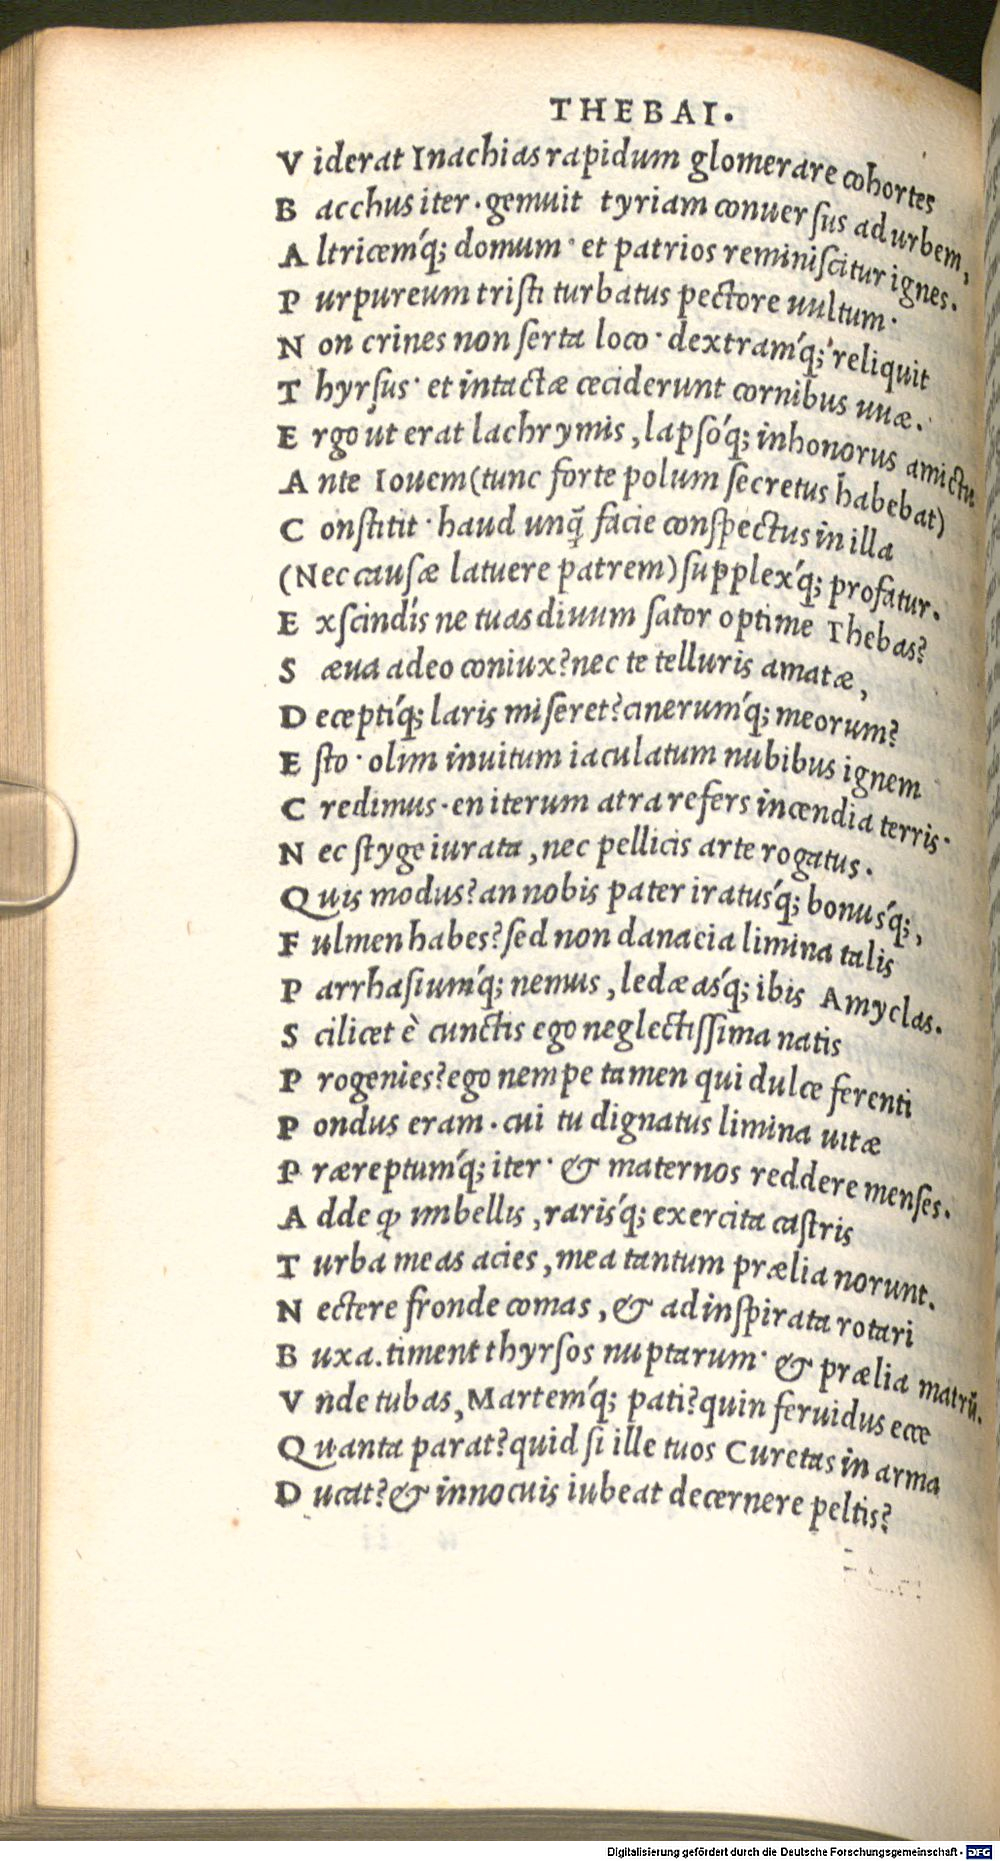 THEBAI.
Viderat Inachias rapidum glomerare cohortes
Bacchus iter. gemuit tyriam conuersus ad urbem,
Altricemq́; domum· et patrios reminiscitur ignes.
Purpureum tristi turbatus pectore uultum·
Non crines non serta loco· dextramq́; reliquit
Thyrsus· et intactæ ceciderunt cornibus uuæ.
Ergo ut erat lachrymis, lapsoq́; inhonorus amictu
Ante Iouem(tunc forte polum secretus habebat)
Constitit· haud unq̃ facie conspectus in illa
(Nec causæ latuere patrem)supplexq́; profatur.
Exscindis ne tuas diuum sator optime Thebas?
Sæua adeo coniux?nec te telluris amatæ,
Deceptiq́; laris miseret?cinerumq́; meorum?
Esto· olim inuitum iaculatum nubibus ignem
Credimus· en iterum atra refers incendia terris·
Nec styge iurata, nec pellicis arte rogatus.
Quis modus?an nobis pater iratusq́; bonusq́;,
Fulmen habes?sed non danaeia limina talis
Parrhasiumq́; nemus, ledæasq́; ibis Amyclas.
Scilicet è cunctis ego neglectissima natis
Progenies?ego nempe tamen qui dulce ferenti
Pondus eram. cui tu dignatus limina uitæ
Præreptumq́; iter· & maternos reddere menses.
Adde ꝙ imbellis, rarisq́; exercita castris
Turba meas acies, mea tantum prælia norunt.
Nectere fronde comas, & ad inspirata rotari
Buxa. timent thyrsos nuptarum· & prælia matrũ.
Vnde tubas, Martemq́; pati?quin feruidus ecce
Quanta parat?quid si ille tuos Curetas in arma
Ducat?& innocuis iubeat decernere peltis?
Digitalisierung gefördert durch die Deutsche Forschungsgemeinschaft - DFG